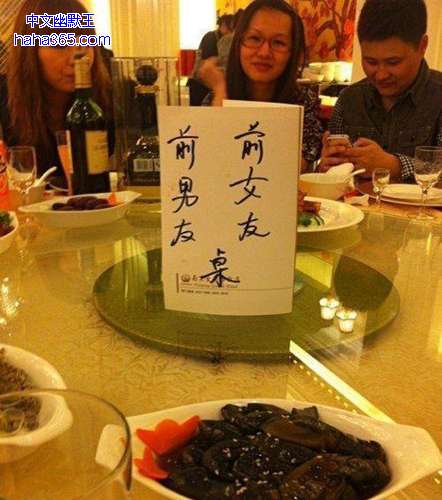 中文幽默王
haha365.com
前女友
前男友
桌